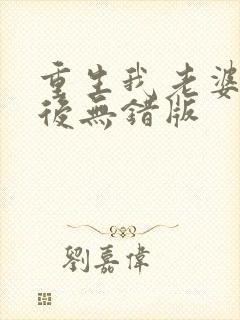 重生我老婆
後無錯版
劉嘉偉